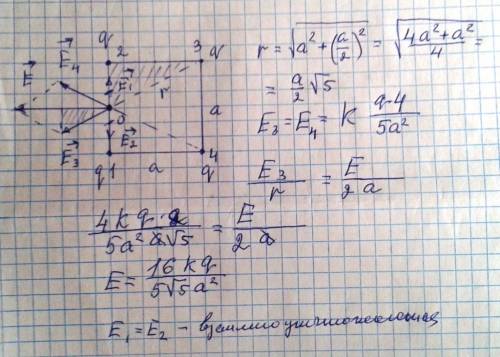 q 2 3 q
E⃗₄ E⃗₁ r
E⃗ 0 a
E⃗₃ E⃗₂
q 1 a 4 q
r = √(a² + (a/2)²) = √((4a² + a²)/4) =
= a/2 √5
E₃ = E₄ = k q·4/5a²
E₃/r = E/2a
4kq·2/5a² a√5 = E/2a
E = 16kq/5√5a²
E₁ = E₂ – взаимоуничтожаются